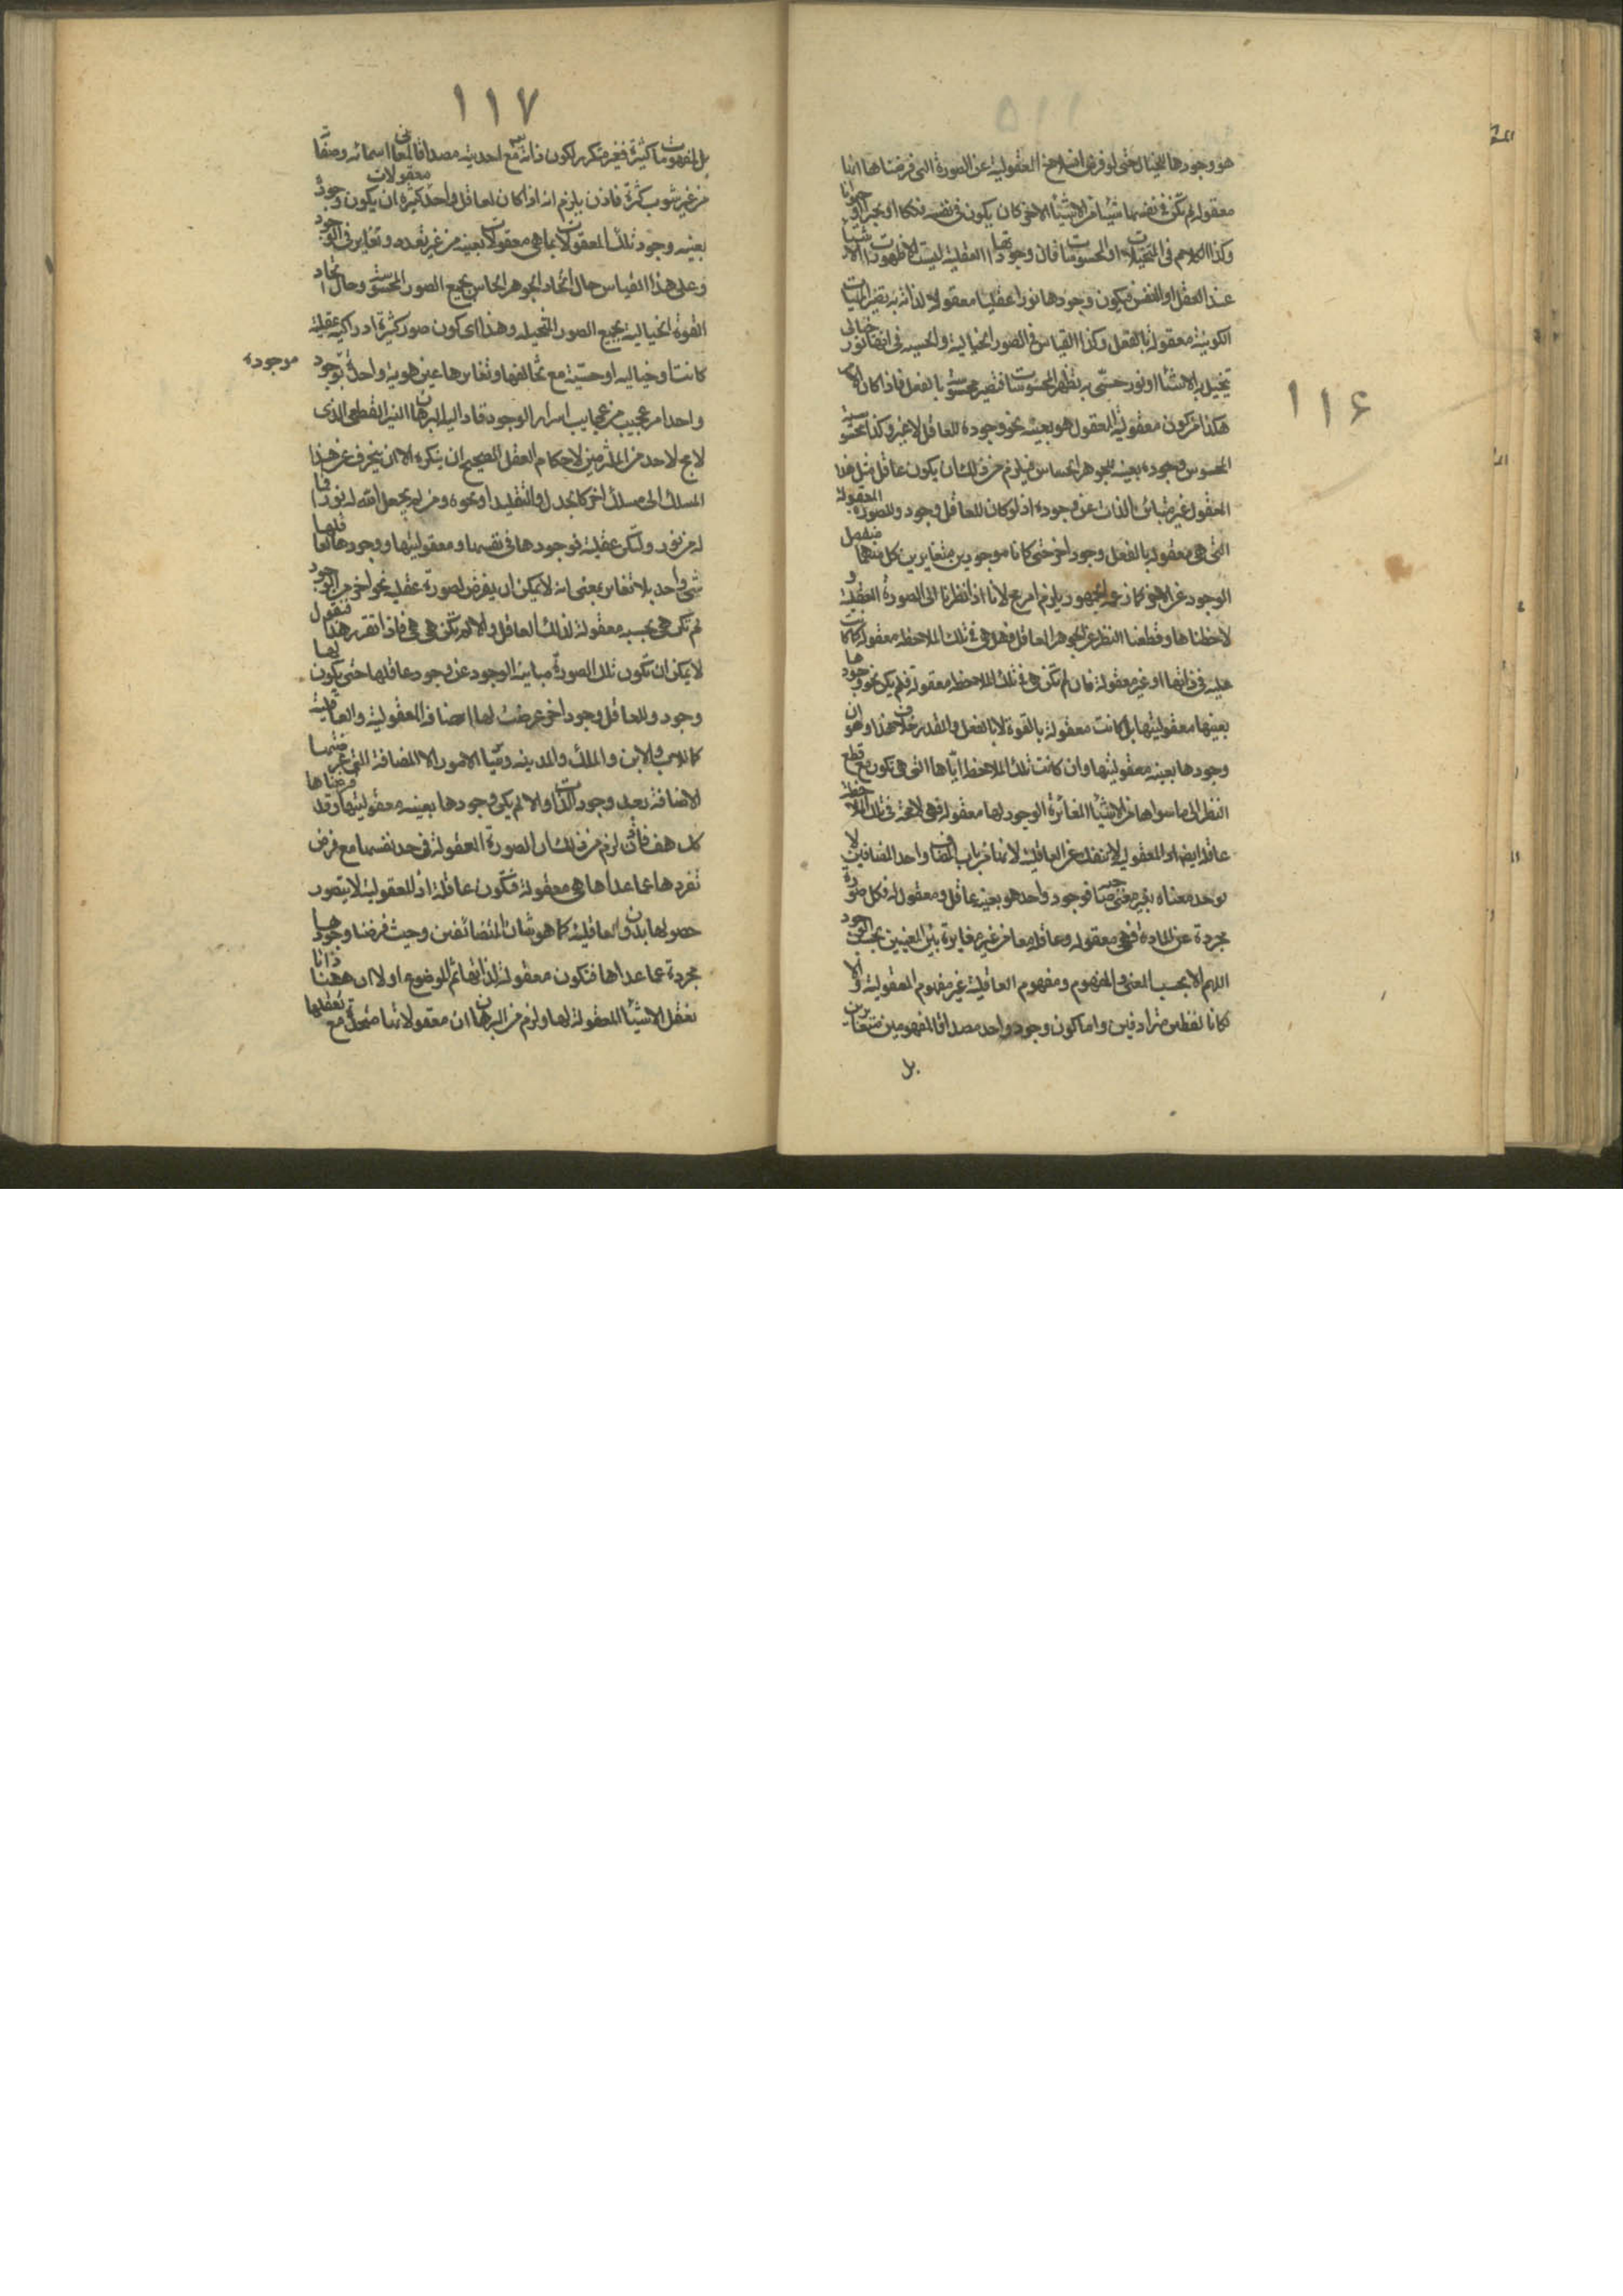 ١١٦
هو وجودها للحيثا حتى لو فرض انسلاخ المعقولية عن الصورة التى فرضناها انها
معقولة لم تكن فى نفسها شيئا من الاشياء الا ان كان يكون فى نفسه فلكا او حجرا او حيوانا
وكذا الكلام فى المتخيلات او المحسوسات فان وجوداتها العقلية ليست الا ظهورات الاشياء
عند العقل او النفس فيكون وجودها نورا عقليا معقولا لذاته به يصير الماهيات
الكونية معقولة بالفعل وكذا القياس فى الصور الخيالية والحسية فى انها نور خيالى
يتخيل به الاشياء او نور حسى به تظهر المحسوسات فتصير محسوسة بالفعل فاذا كان الامر
هكذا من كون معقولية المعقول هو بعينه نحو وجوده للعاقل لا غير وكذا محسوسية
المحسوس وجوده بعينه للجوهر الحساس فيلزم من ذلك ان يكون عاقل مثل هذا
المعقول غير مباين الذات عن وجوده اذ لو كان للعاقل وجود وللصورة المعقولة
التى هى معقولة بالفعل وجود اخر حتى كانا موجودين متغايرين كل منهما منفصل
الوجود عن الاخر كما زعمه الجمهور يلزم امر مح لانا اذا نظرنا الى الصورة العقلية و
لاحظناها وقطعنا النظر عن الجوهر العاقل فهل هى فى تلك الملاحظة معقولة كما كانت
عليه فى ذاتها او غير معقولة فان لم تكن هى فى تلك الملاحظة معقولة فلم يكن نحو وجودها
بعينها معقوليتها بل كانت معقولة بالقوة لا بالفعل والمقدر خلاف هذا وهو ان
وجودها بعينه معقوليتها وان كانت تلك الملاحظة اياها التى هى تكون مع قطع
النظر الى ما سواها من الاشياء المغايرة الوجود لها معقولة فهى لا محة فى تلك الملاحظة
عاقلة ايضا اذ المعقولية لا تنفك عن العاقلية لانها من باب المضاف واحد المضافين لا
يوجد معناه بغير معنى صاحبه فوجود واحد هو بعينه عاقل ومعقول له فكل صورة
مجردة عن المادة فهى معقولة وعاقلة معا من غير مغايرة بين المعنيين بحسب الوجود
اللهم الا بحسب المعنى والمفهوم ومفهوم العاقلية غير مفهوم المعقولية والا
لكانا لفظين مترادفين واما كون وجود واحد مصداقا لمفهومين متغايرين
بل
١١٧
بل لمفهومات كثيرة فغير منكر لكون ذاته تع مع احديته مصداقا لمعانى اسمائه وصفاته
من غير شوب كثرة فاذن يلزم انه اذا كان لعاقل واحد معقولات كثيرة ان يكون وجوده
بعينه وجود تلك المعقولات بما هى معقولات بعينه من غير تعدد وتغاير فى الوجود
وعلى هذا القياس حال اتحاد الجوهر الحاس بجميع الصور المحسوسة وحال اتحاد
القوة الخيالية بجميع الصور المتخيلة وهذا اى كون صور كثيرة ادراكية عقلية
كانت او خيالية او حسية مع تخالفها وتغايرها عين هوية واحدة موجودة بوجود
واحد امر عجيب من عجايب اسرار الوجود قاد اليه البرهان النير القطعى الذى
لا يج لاحد من الملتزمين لاحكام العقل الصحيح ان ينكره الا ان ينحرف عن هذا
المسلك الى مسلك اخر كالجدل والتقليد او نحوه ومن لم يجعل الله له نورا فما
له من نور ولتكن عقلية فوجودها فى نفسها ومعقوليتها ووجودها لعاقلها
شى واحد بلا تغاير بمعنى انه لا يمكن ان يفرض لصورة عقلية نحو اخر من الوجود
لم تكن هى بحسبه معقولة لذلك العاقل والا لم تكن هى هى فاذا تقرر هذا فنقول
لا يمكن ان تكون تلك الصورة مباينة الوجود عن وجود عاقلها حتى يكون لها
وجود وللعاقل وجود اخر عرضت لهما اضافة المعقولية والعاقلية
كما للاب والابن والملك والمدينة وسائر الامور المضافة التى عرضتها
الاضافة بعد وجود الذات والا لم يكن وجودها بعينه معقوليتها وقد فرضناها
كك هف فاذن لزم من ذلك ان الصورة المعقولة فى حد نفسها مع فرض
تفردها عما عداها هى معقولة فتكون عاقلة اذ المعقولية لا يتصور
حصولها بدون العاقلية كما هو شان المتضائفين وحيث فرضنا وجودها
مجردة عما عداها فتكون معقولة لذاتها ثم الموضوع اولا ان ههنا ذاتا
تعقل الاشياء المعقولة لها ولزم من البرهان ان معقولاتها متحدة مع تعقلها